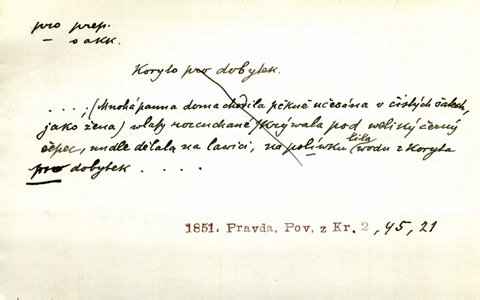 pro prep.
– s akk.
Koryto pro dobytek.
. . . ; (Mnohá panna doma chodila pěkně učesána v čistých šatech,
jako žena) vlasy rozcuchané skrývala pod veliký černý
čepec, nudle dělala na lavici, na polívku lila vodu z koryta
pro dobytek . . . .
1851. Pravda, Pov. z Kr. 2, 45, 21